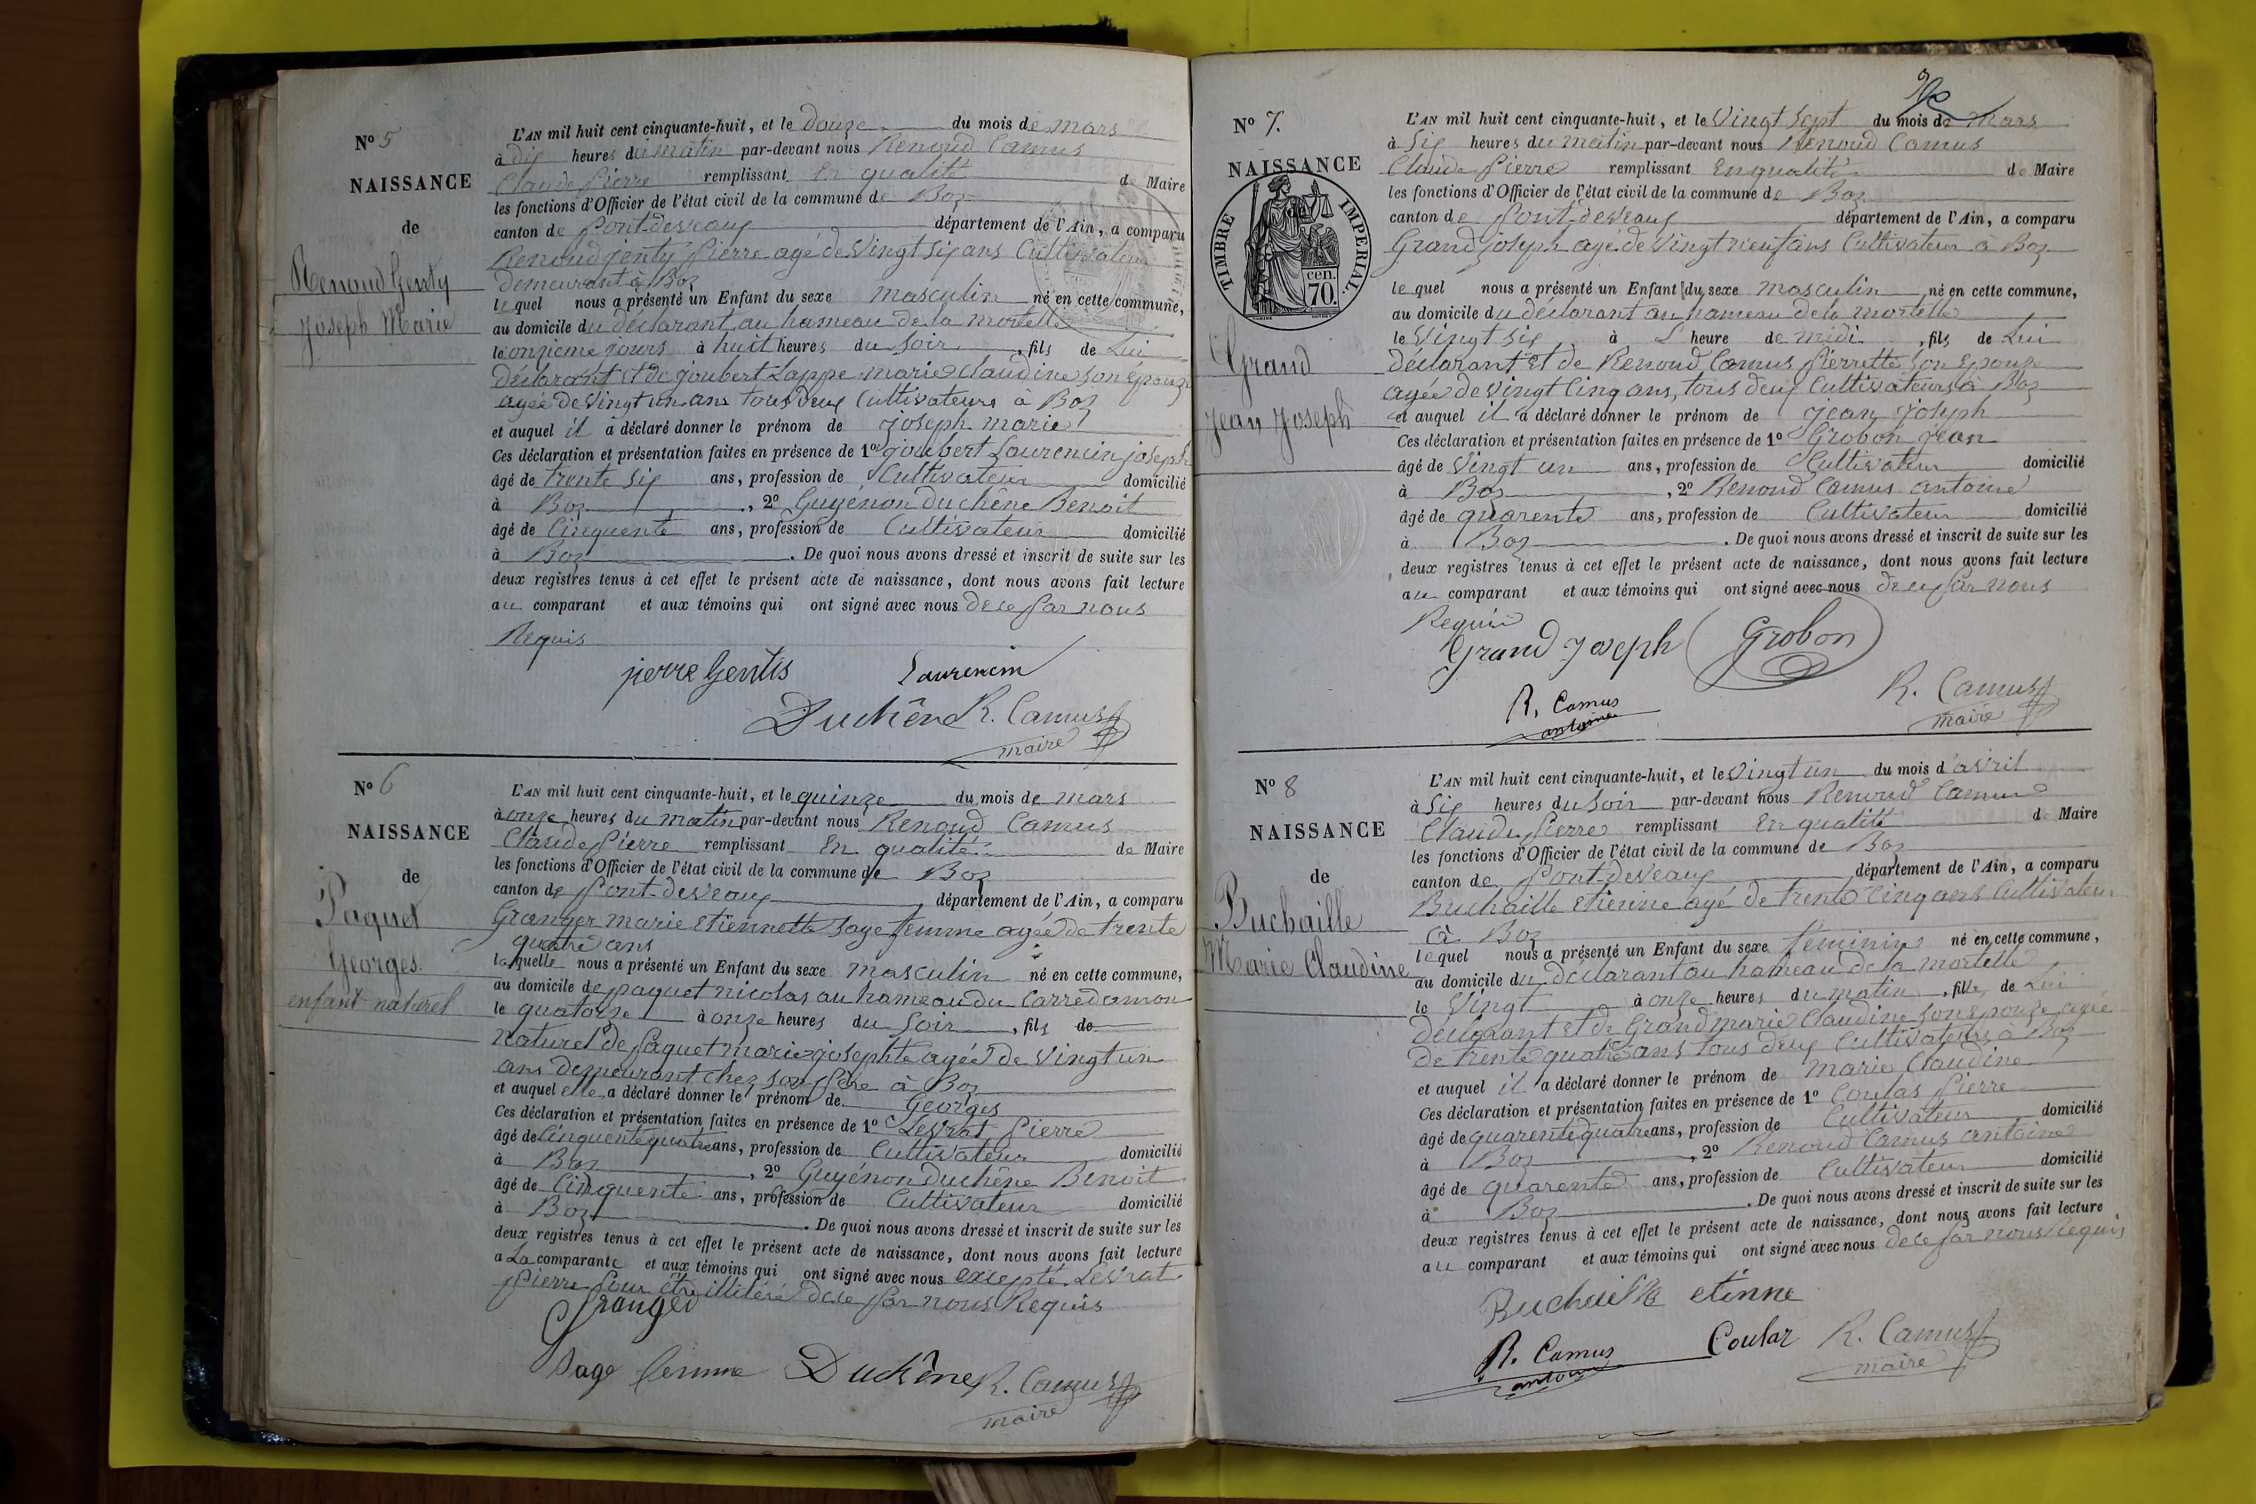 No 5
NAISSANCE
de
Renoud Genty
Joseph Marie
L'AN mil huit cent cinquante-huit, et le douze du mois de mars
à dix heures du matin par-devant nous Renoud Camus
Claude Pierre remplissant En qualité de Maire
les fonctions d'Officier de l'état civil de la commune de Boz
canton de Pont-deveaux département de l'Ain, a comparu
Renoud jenty Pierre agé de vingt six ans Cultivateur
demeurant à Boz
lequel nous a présenté un Enfant du sexe masculin né en cette commune,
au domicile du déclarant au hameau de la mortelle
le onzieme jours à huit heures du soir, fils de Lui
Déclarant et de joubert Lappe marie Claudine son épouze
agée de vingt un ans tous deux Cultivateurs à Boz
et auquel il a déclaré donner le prénom de joseph marie
Ces déclaration et présentation faites en présence de 1o joubert Laurencin joseph
âgé de trente six ans, profession de Cultivateur domicilié
à Boz, 2o Guyénon Duchêne Benoit
âgé de Cinquente ans, profession de Cultivateur domicilié
à Boz. De quoi nous avons dressé et inscrit de suite sur les
deux registres tenus à cet effet le présent acte de naissance, dont nous avons fait lecture
au comparant et aux témoins qui ont signé avec nous de ce par nous
Requis
pierre Gentis Laurencin
Duchêne R. Camus
maire
No 6
NAISSANCE
de
Paquet
Georges
enfant naturel
L'AN mil huit cent cinquante-huit, et le quinze du mois de mars
à onze heures du matin par-devant nous Renoud Camus
Claude Pierre remplissant En qualité de Maire
les fonctions d'Officier de l'état civil de la commune de Boz
canton de Pont-deveaux département de l'Ain, a comparu
Granger marie Etiennette sage femme agée de trente
quatre ans
laquelle nous a présenté un Enfant du sexe masculin né en cette commune,
au domicile de paquet nicolas au hameau du Carre damon
le quatorze à onze heures du soir, fils de
naturel de Paquet marie josephte agée de vingt un
ans demeurant chez son Père à Boz
et auquel elle a déclaré donner le prénom de Georges
Ces déclaration et présentation faites en présence de 1o Levrat Pierre
âgé de Cinquente quatre ans, profession de Cultivateur domicilié
à Boz, 2o Guyénon duchêne Benoit
âgé de Cinquente ans, profession de Cultivateur domicilié
à Boz. De quoi nous avons dressé et inscrit de suite sur les
deux registres tenus à cet effet le présent acte de naissance, dont nous avons fait lecture
a La comparante et aux témoins qui ont signé avec nous excepté Levrat
Pierre Pour être illitéré de ce par nous Requis
Granger
Sage femme Duchêne R. Camus
maire
No 7.
NAISSANCE
de
TIMBRE IMPERIAL.
cen.
70.
Grand
Jean Joseph
L'AN mil huit cent cinquante-huit, et le Vingt Sept du mois de Mars
à Six heures du matin par-devant nous Renoud Camus
Claude Pierre remplissant En qualité de Maire
les fonctions d'Officier de l'état civil de la commune de Boz
canton de Pont-deveaux département de l'Ain, a comparu
Grand joseph agé de vingt neuf ans Cultivateur à Boz
lequel nous a présenté un Enfant du sexe masculin né en cette commune,
au domicile du déclarant au hameau de la mortelle
le Vingt Six à L'heure de midi, fils de Lui
déclarant Et de Renoud Camus Pierrette son Epouze
agée de vingt Cinq ans, tous deux Cultivateurs à Boz
et auquel il a déclaré donner le prénom de jean joseph
Ces déclaration et présentation faites en présence de 1o Grobon jean
âgé de Vingt un ans, profession de Cultivateur domicilié
à Boz, 2o Renoud Camus antoine
âgé de quarente ans, profession de Cultivateur domicilié
à Boz. De quoi nous avons dressé et inscrit de suite sur les
deux registres tenus à cet effet le présent acte de naissance, dont nous avons fait lecture
au comparant et aux témoins qui ont signé avec nous de ce Par nous
Requis
Grand Joseph Grobon
R. Camus
antoine
R. Camus
maire
No 8
NAISSANCE
de
Buchaille
Marie Claudine
L'AN mil huit cent cinquante-huit, et le Vingt un du mois d'avril
à Six heures du Soir par-devant nous Renoud Camus
Claude Pierre remplissant En qualité de Maire
les fonctions d'Officier de l'état civil de la commune de Boz
canton de Pont-deveaux département de l'Ain, a comparu
Buchaille Etienne agé de trente Cinq ans Cultivateur
à Boz
lequel nous a présenté un Enfant du sexe féminin né en cette commune,
au domicile du déclarant au hameau de la mortelle
le Vingt à onze heures du matin, fille de Lui
déclarant Et de Grand marie Claudine son epouze agée
de trente quatre ans tous deux Cultivateurs à Boz
et auquel il a déclaré donner le prénom de marie Claudine
Ces déclaration et présentation faites en présence de 1o Coulas Pierre
âgé de quarente quatre ans, profession de Cultivateur domicilié
à Boz, 2o Renoud Camus antoine
âgé de quarente ans, profession de Cultivateur domicilié
à Boz. De quoi nous avons dressé et inscrit de suite sur les
deux registres tenus à cet effet le présent acte de naissance, dont nous avons fait lecture
au comparant et aux témoins qui ont signé avec nous de ce par nous Requis
Buchaille etinne
R. Camus
antoine
Coular R. Camus
maire